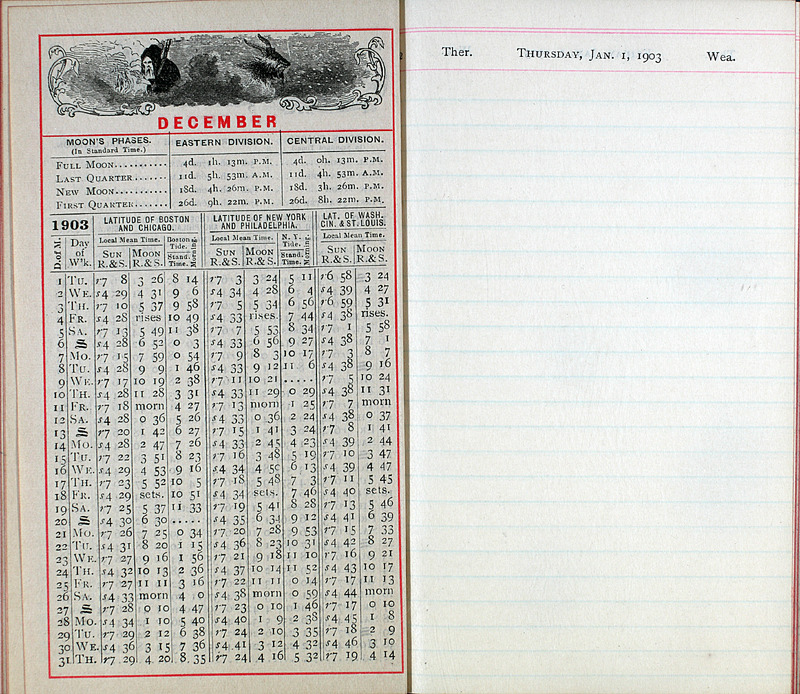 DECEMBER
MOON'S PHASES. EASTERN DIVISION. CENTRAL DIVISION.
(In Standard Time.)
FULL MOON........... 4d. 1h. 13m. P.M. 4d. 0h. 13m. P.M.
LAST QUARTER....... 11d. 5h. 53m. A.M. 11d. 4h. 53m. A.M.
NEW MOON........... 18d. 4h. 26m. P.M. 18d. 3h. 26m. P.M.
FIRST QUARTER....... 26d. 9h. 22m. P.M. 26d. 8h. 22m. P.M.
1903 LATITUDE OF BOSTON AND CHICAGO. LATITUDE OF NEW YORK AND PHILADELPHIA. LAT. OF WASH. CIN. & ST. LOUIS.
D. of M. Day of W'k. Local Mean Time. Boston Tide. Morning. Local Mean Time. N. Y. Tide. Morning. Local Mean Time.
SUN R.&S. MOON R.&S. Stand. Time. SUN R.&S. MOON R.&S. Stand. Time. SUN R.&S. MOON R.&S.
1 TU. r7 8 3 26 8 14 r7 3 3 24 5 11 r6 58 3 24
2 WE. s4 29 4 31 9 6 s4 34 4 28 6 4 s4 39 4 27
3 TH. r7 10 5 37 9 58 r7 5 5 34 6 56 r6 59 5 31
4 FR. s4 28 rises 10 49 s4 33 rises. 7 44 s4 38 rises.
5 SA. r7 13 5 49 11 38 r7 7 5 53 8 34 r7 1 5 58
6 S s4 28 6 52 0 3 s4 33 6 56 9 27 s4 38 7 1
7 MO. r7 15 7 59 0 54 r7 9 8 3 10 17 r7 3 8 7
8 TU. s4 28 9 9 1 46 s4 33 9 12 11 6 s4 38 9 16
9 WE. r7 17 10 19 2 38 r7 11 10 21 ..... r7 5 10 24
10 TH. s4 28 11 28 3 31 s4 33 11 29 0 29 s4 38 11 31
11 FR. r7 18 morn 4 27 r7 13 morn 1 25 r7 7 morn
12 SA. s4 28 0 36 5 26 s4 33 0 36 2 24 s4 38 0 37
13 S r7 20 1 42 6 27 r7 15 1 41 3 24 r7 8 1 41
14 MO. s4 28 2 47 7 26 s4 33 2 45 4 23 s4 39 2 44
15 TU. r7 22 3 51 8 23 r7 16 3 48 5 19 r7 10 3 47
16 WE. s4 29 4 53 9 16 s4 34 4 50 6 13 s4 39 4 47
17 TH. r7 23 5 52 10 5 r7 18 5 48 7 3 r7 11 5 45
18 FR. s4 29 sets. 10 51 s4 34 sets. 7 46 s4 40 sets.
19 SA. r7 25 5 37 11 33 r7 19 5 41 8 28 r7 13 5 46
20 S s4 30 6 30 ..... s4 35 6 34 9 12 s4 41 6 39
21 MO. r7 26 7 25 0 34 r7 20 7 28 9 53 r7 15 7 33
22 TU. s4 31 8 20 1 15 s4 36 8 23 10 31 s4 42 8 27
23 WE. r7 27 9 16 1 56 r7 21 9 18 11 10 r7 16 9 21
24 TH. s4 32 10 13 2 36 s4 37 10 14 11 52 s4 43 10 17
25 FR. r7 27 11 11 3 16 r7 22 11 11 0 14 r7 17 11 13
26 SA. s4 33 morn 4 0 s4 38 morn 0 59 s4 44 morn
27 S r7 28 0 10 4 47 r7 23 0 10 1 46 r7 17 0 10
28 MO. s4 34 1 10 5 40 s4 40 1 9 2 38 s4 45 1 8
29 TU. r7 29 2 12 6 38 r7 24 2 10 3 35 r7 18 2 9
30 WE. s4 36 3 15 7 36 s4 41 3 12 4 32 s4 46 3 10
31 TH. r7 29 4 20 8 35 r7 24 4 16 5 32 r7 19 4 14
Ther. THURSDAY, JAN. 1, 1903 Wea.